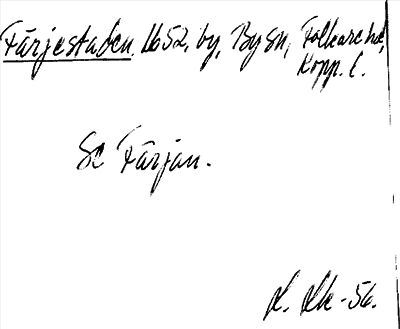 Färjestaden, 1652, by, By sn, Folkare hd,
Kopp. l.
Se Färjan.